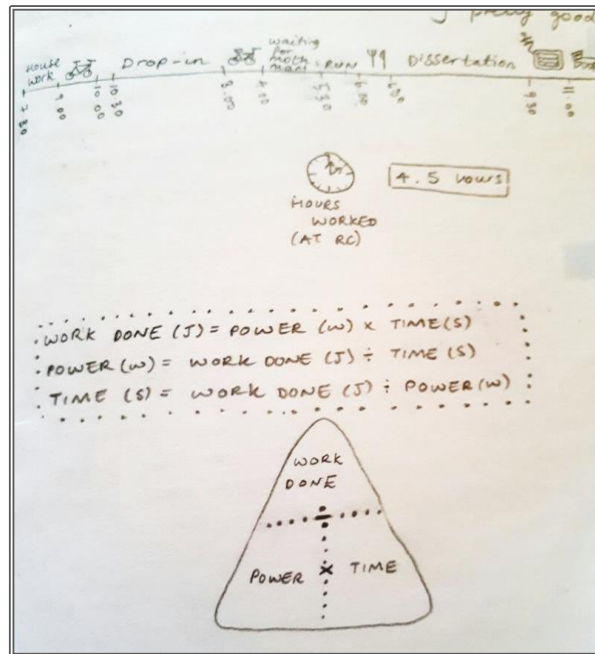 J pretty good
House work Drop-in waiting for moth man RUN Dissertation
7.30 9.00 10.00 10.30 3.00 4.00 5.30 6.00 9.30 11.00
4.5 hours
HOURS
WORKED
(AT RC)
WORK DONE (J) = POWER (W) x TIME (S)
POWER (W) = WORK DONE (J) ÷ TIME (S)
TIME (S) = WORK DONE (J) ÷ POWER (W)
WORK
DONE
POWER × TIME